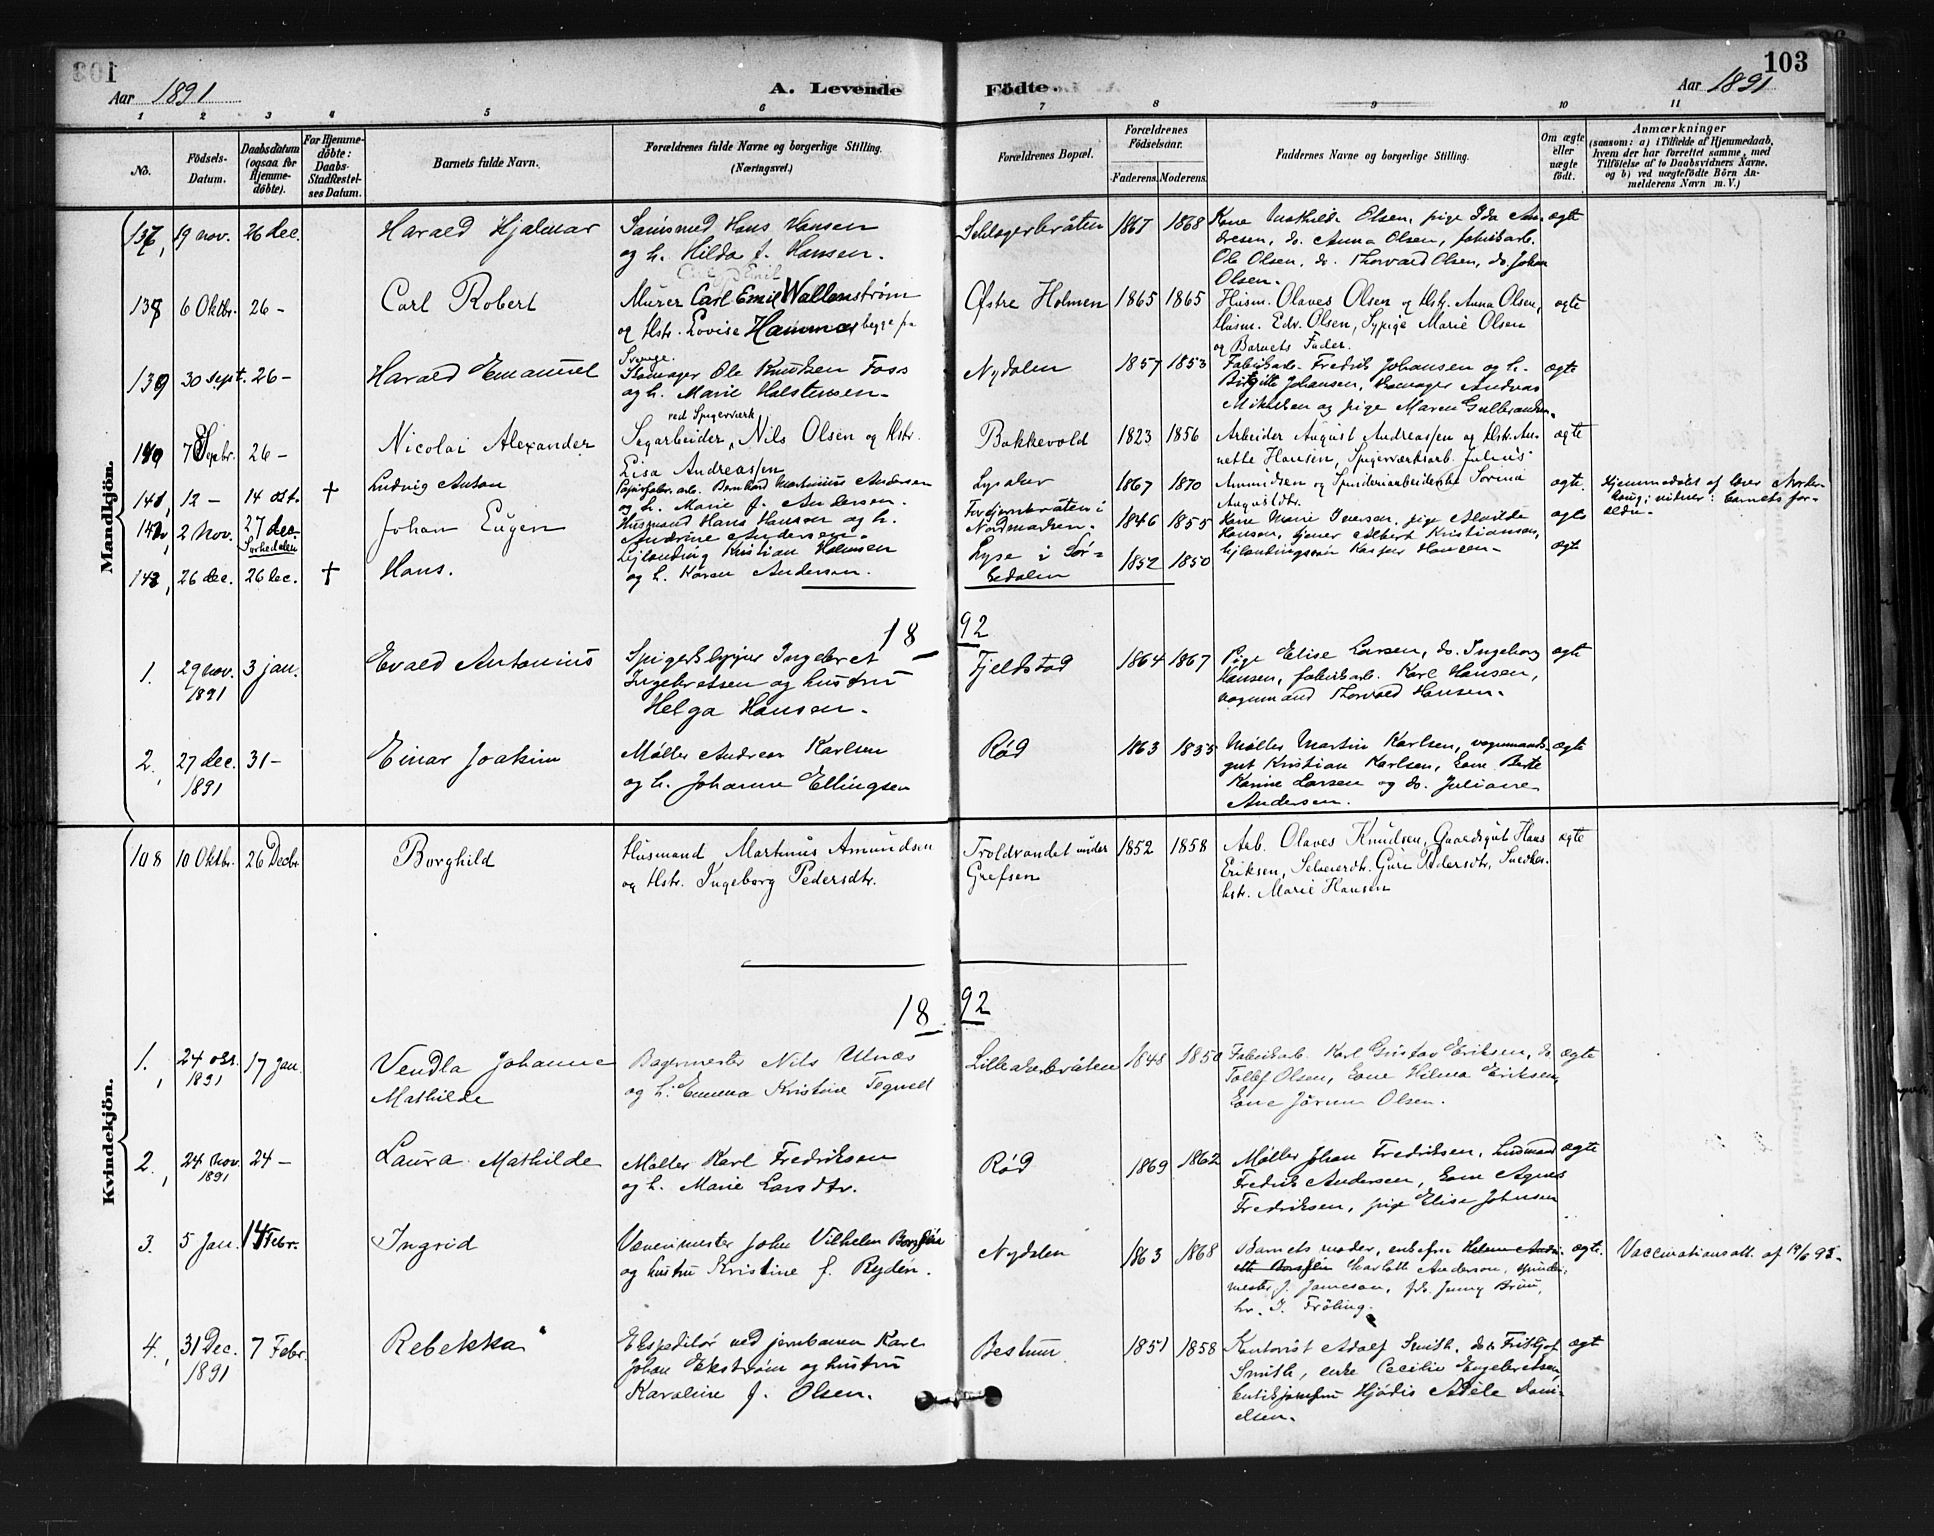 103
Aar 1891
A. Levende Födte.
Aar 1891
1 2 3 4 5 6 7 8 9 10 11
No.
Födsels-
Datum.
Daabsdatum
(ogsaa for
Hjemme-
döbte).
For Hjemme-
döbte:
Daabs-
Stadfæstel-
ses Datum.
Barnets fulde Navn.
Forældrenes fulde Navne og borgerlige Stilling.
(Næringsvei.)
Forældrenes Bopæl.
Forældrenes
Fødselsaar.
Faderens. Moderens.
Faddernes Navne og borgerlige Stilling.
Om ægte
eller
uægte
født.
Anmærkninger
(saasom: a) i Tilfælde af Hjemmedaab,
hvem der har forrettet samme, med
Tilföielse af to Daabsvidners Navne,
og b) ved uægtefödte Börn An-
melderens Navn m. V.)
Mandkjön.
137, 19 nov. 26 dec. Harald Hjalmar
Hans Hansen
og h. Hilda f. Hansen.
1867 1868
Kone Mathilde Olsen, pige Ida An-
dresen, do. Anna Olsen, fabrikarb.
Ole Olsen, do. Thorvald Olsen, do. Johan
Olsen.
ægte
138 6 Oktbr. 26 - Carl Robert
Murer Carl Emil Wallenstrøm
og Hstr. Lovise Hammar begge fra
Sverige.
Østre Holmen 1865 1865
Husm. Olaves Olsen og Hstr. Anna Olsen,
Husm. Edv. Olsen, Sypige Marie Olsen
og Barnets Fader.
ægte
139 30 sept. 26 - Harald Emanuel
Ole Knudsen Foss
og h. Marie Halstensen.
Nydalen 1857 1853
Fabrikarb. Fredrik Johansen og h.
Birgitte Johansen, Andreas
Mikkelsen og pige Maren Gulbrandsen.
ægte
140 7 Septbr. 26 - Nicolai Alexander
ved Spigerværk
Nils Olsen og Hstr.
Lisa Andreassen
Bakkevold 1823 1856
Arbeider August Andreassen og Hstr. An-
nette Hansen, Spigerværksarb. Julius
ægte
141, 12 - 14 okt. † Ludvig Anton
Papirfabr.arb. Bernhard Martinius Andersen
og h. Marie f. Andersen.
Lysaker 1867 1870
Amundsen og Spinderiarbeiderske Sorine
Augustdtr.
ægte.
Hjemmedøbt af
vidner: barnets for-
ældre.
142, 2 Nov. 27 dec.
Sørkedalen
Johan Eugen
Husmand Hans Hansen og h.
Andrine Andersen.
Nordmarken. 1846 1855
Kone Marie Iversen, pige Alvilde
Hansen, tjener Albert Kristiansen,
Leilendingssøn Kasper Hansen -
ægte
143, 26 dec. 26 dec. † Hans.
Leilending Kristian Hansen
og h. Karen Andersen.
Lyse i Sør-
kedalen 1852 1850
ægte
1892
1. 29 nov.
1891
3 jan. Evald Antonius
Ingebret
Ingebretsen og hustru
Helga Hansen.
Fjeldstad 1864 1867
Pige Elise Larsen, do. Ingeborg
Hansen, fabrikarb. Karl Hansen,
vognmand Thorvald Hansen.
ægte
2, 27 dec.
1891
31 - Einar Joakim
Møller Andreas Karlsen
og h. Johanne Ellingsen
Rød 1863 1855
Møller Martin Karlsen, vognmands-
gut Kristian Karlsen, kone Berte
Karine Larsen og do. Juliane
Andersen.
ægte
Kvindekjön.
108 10 Oktbr. 26 Decbr. Borghild
Husmand Martinus Amundsen
og Hstr. Ingeborg Pedersdtr.
Troldvandet under
Grefsen
1852 1858
Arb. Olaves Knudsen, Gaardsgut Hans
Eriksen, Guri Pedersdtr, Snedker
hstr. Marie Hansen
ægte
1892
1., 24 okt.
1891
17 jan. Vendla Johanne
Mathilde
Bagermester Nils Ulnæs
og h. Emma Kristine Tegnell
Lilleakerbråten 1848 1850
Fabrikarb. Karl Gustav Eriksen, do.
Tollef Olsen, kone Hilma Eriksen,
kone Jørun Olsen.
ægte
2., 24 nov.
1891
24 - Laura Mathilde
Møller Karl Fredriksen
og h. Marie Larsdtr.
Rød 1869 1862
Møller Johan Fredriksen,
Fredrik Andersen, kone Agnes
Fredriksen, pige Elise Johnsen
ægte
3. 5 Jan. 14 Febr. Ingrid
Vævemester John Vilhelm
og hustru Kristine f. Rydén.
Nydalen 1863 1868
Barnets moder, enkefru
Charlotte Anderson,
mester J. Jameson, frk. Jenny Bruu,
hr. I. Fröling.
ægte.
Vaccinationsatt. af 19/6 95.
4., 31 Dec.
1891
7 Febr. Rebekka
Ekspeditør ved jernbanen Karl
Johan Ekstrøm og hustru
Karoline f. Olsen.
Bestum 1851 1858
Kontorist Adolf Smith, do. Frithjof
Smith, enke Cecilie Engebretsen,
butikjomfru Hjørdis Adèle Dani-
elsen.
ægte